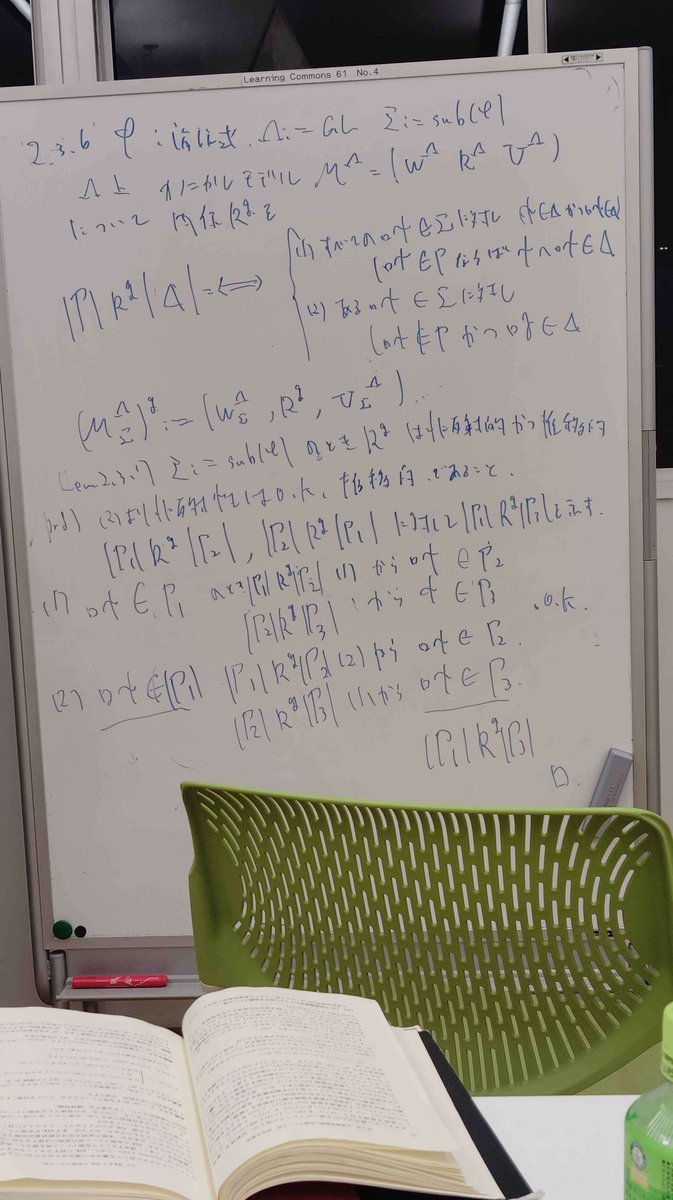 Learning Commons 61 No.4
2.3.6 φ:論理式. Λ:=GL Σ:=sub(φ)
Λ上 カノニカルモデル M^Λ=(W^Λ R^Λ V^Λ)
について 関係R^gを
|Γ|R^g|Δ|:⟺
(1) すべての□ψ∈Σに対し (ψ∈Δかつ□ψ∈Δ)
□ψ∈Γならばψ∧□ψ∈Δ
(2) ある□ψ∈Σに対し
□ψ∉Γかつ□ψ∈Δ
(M^Λ_Σ)^g:=(W^Λ_Σ, R^g, V^Λ_Σ)
Lem2.3.7) Σ:=sub(φ)のときR^gは非反射的かつ推移的
prf) (2)より非反射性はo.k. 推移的であること.
|Γ1|R^g|Γ2|, |Γ2|R^g|Γ3|に対して|Γ1|R^g|Γ3|を示す.
(1) □ψ∈Γ1のとき|Γ1|R^g|Γ2|(1)から□ψ∈Γ2
|Γ2|R^g|Γ3|(1)からψ∈Γ3 .o.k.
(2) □ψ∉|Γ1| |Γ1|R^g|Γ2|(2)から □ψ∈Γ2.
|Γ2|R^g|Γ3|(1)から □ψ∈Γ3.
|Γ1|R^g|Γ3|
□.